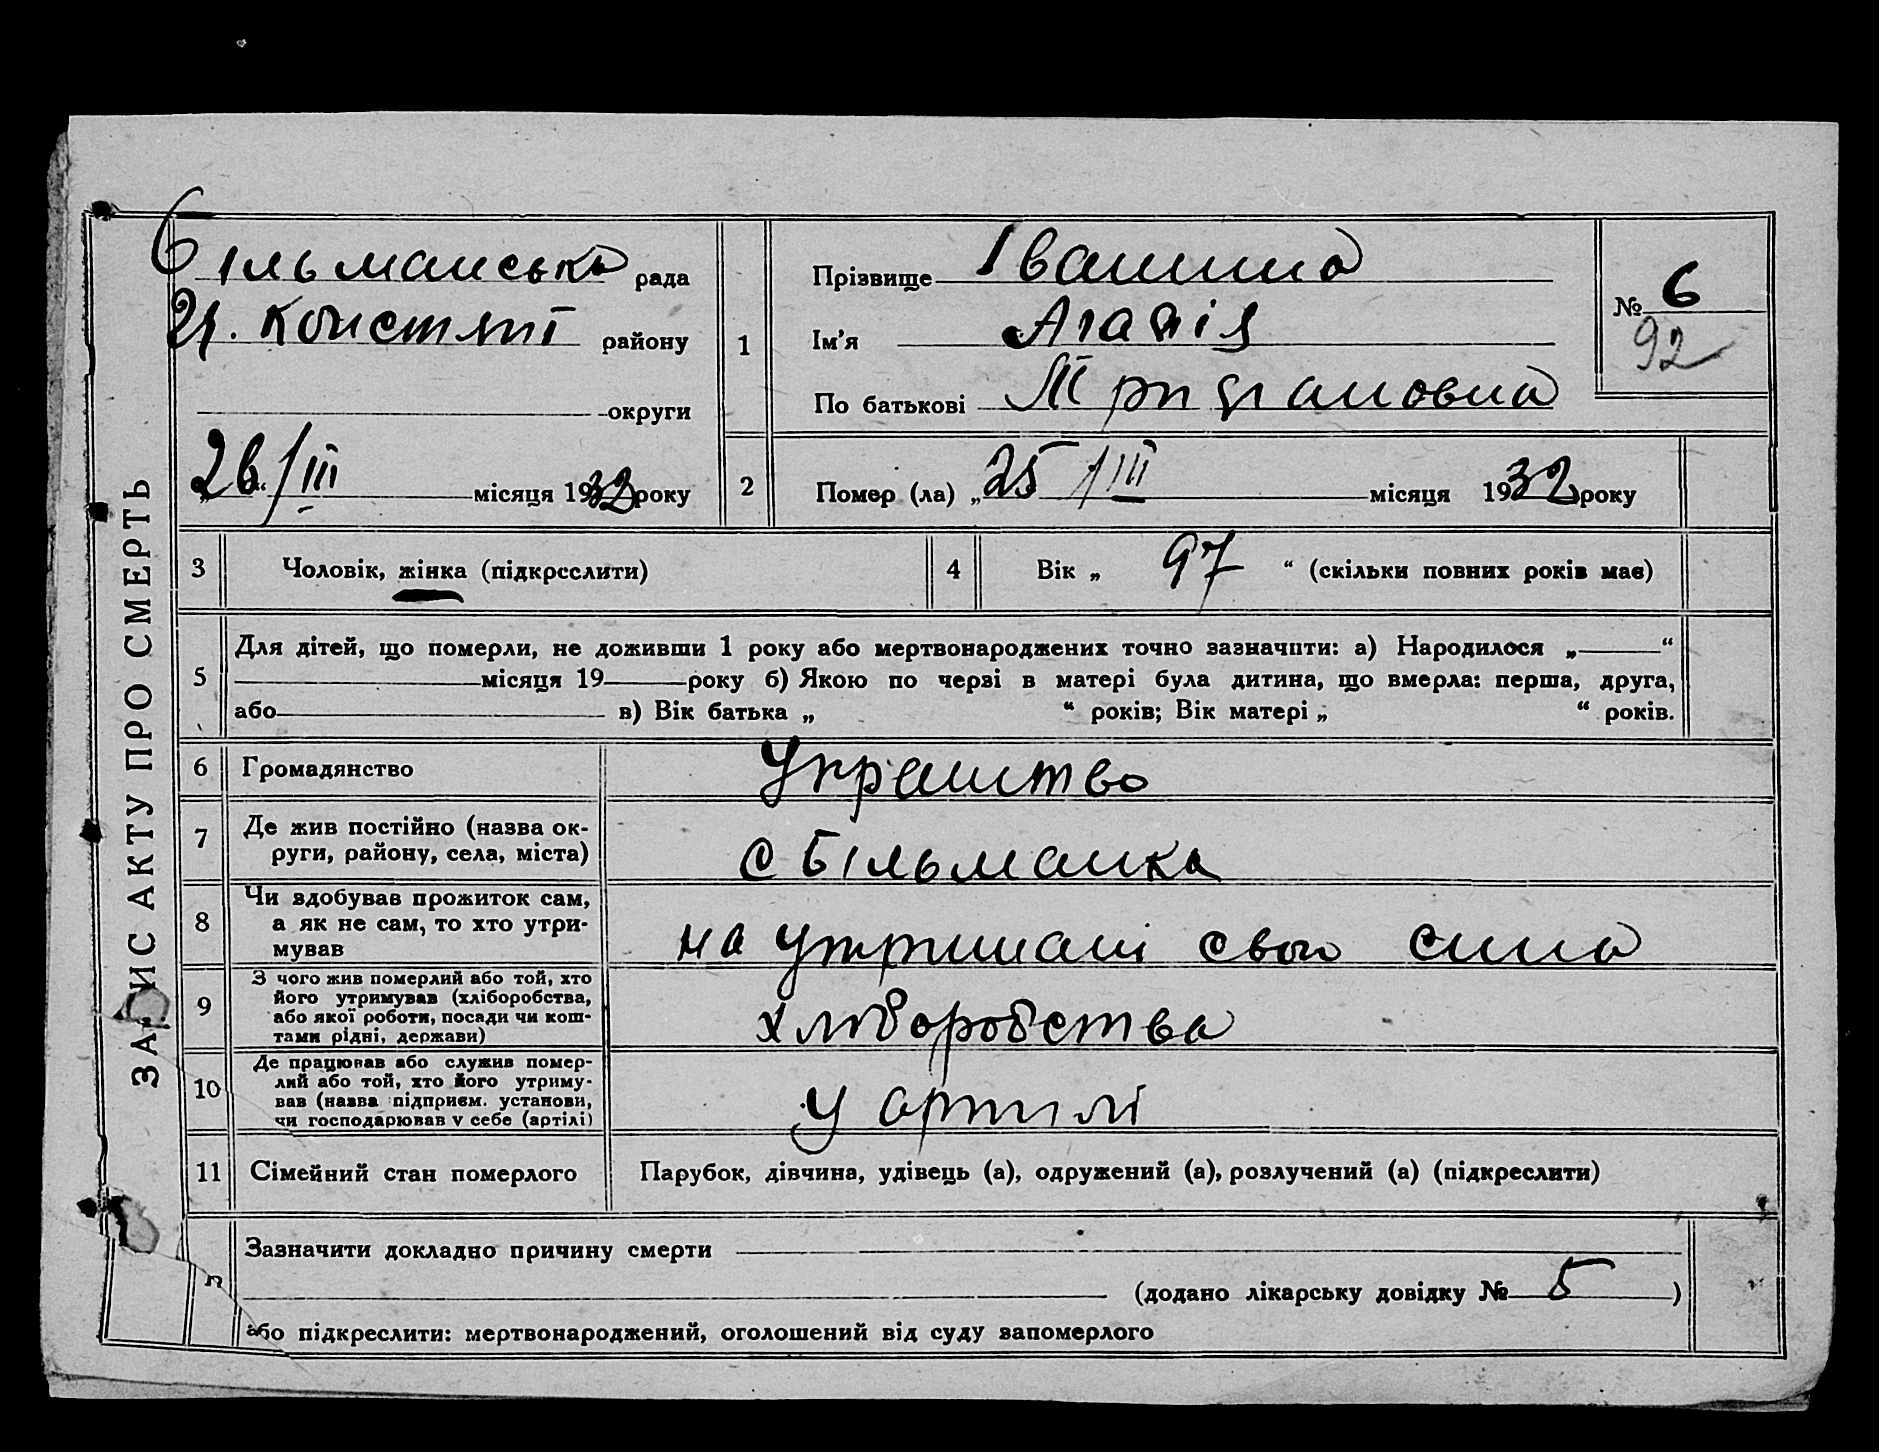 ЗАПИС АКТУ ПРО СМЕРТЬ
Більманська рада
Ц. Констянт району
округи
„26“/III місяця 1932 року
1
Прізвище Іванина
Ім'я Агапія
По батькові
№ 6
92
2
Помер (ла) „25 /III місяця 1932 року
3 Чоловік, жінка (підкреслити)
4 Вік „ 97 “ (скільки повних років має)
5
Для дітей, що померли, не доживши 1 року або мертвонароджених точно зазначити: а) Народилося „ “
місяця 19 року б) Якою по черзі в матері була дитина, що вмерла: перша, друга,
або в) Вік батька „ “ років; Вік матері „ “ років.
6 Громадянство
7 Де жив постійно (назва ок-
руги, району, села, міста)
с Більманка
8 Чи здобував прожиток сам,
а як не сам, то хто утри-
мував
на утримані свого сина
9 З чого жив померлий або той, хто
його утримував (хліборобства,
або якої роботи, посади чи кош-
тами рідні, держави)
хліборобства
10 Де працював або служив помер-
лий або той, хто його утриму-
вав (назва підприєм. установи,
чи господарював у себе (артілі)
у артілі
11 Сімейний стан померлого
Парубок, дівчина, удівець (а), одружений (а), розлучений (а) (підкреслити)
Зазначити докладно причину смерти
(додано лікарську довідку № 5 )
або підкреслити: мертвонароджений, оголошений від суду запомерлого